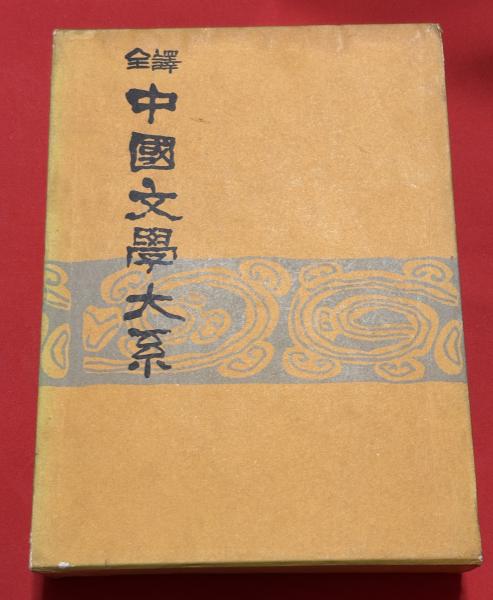 全譯
中國文學大系